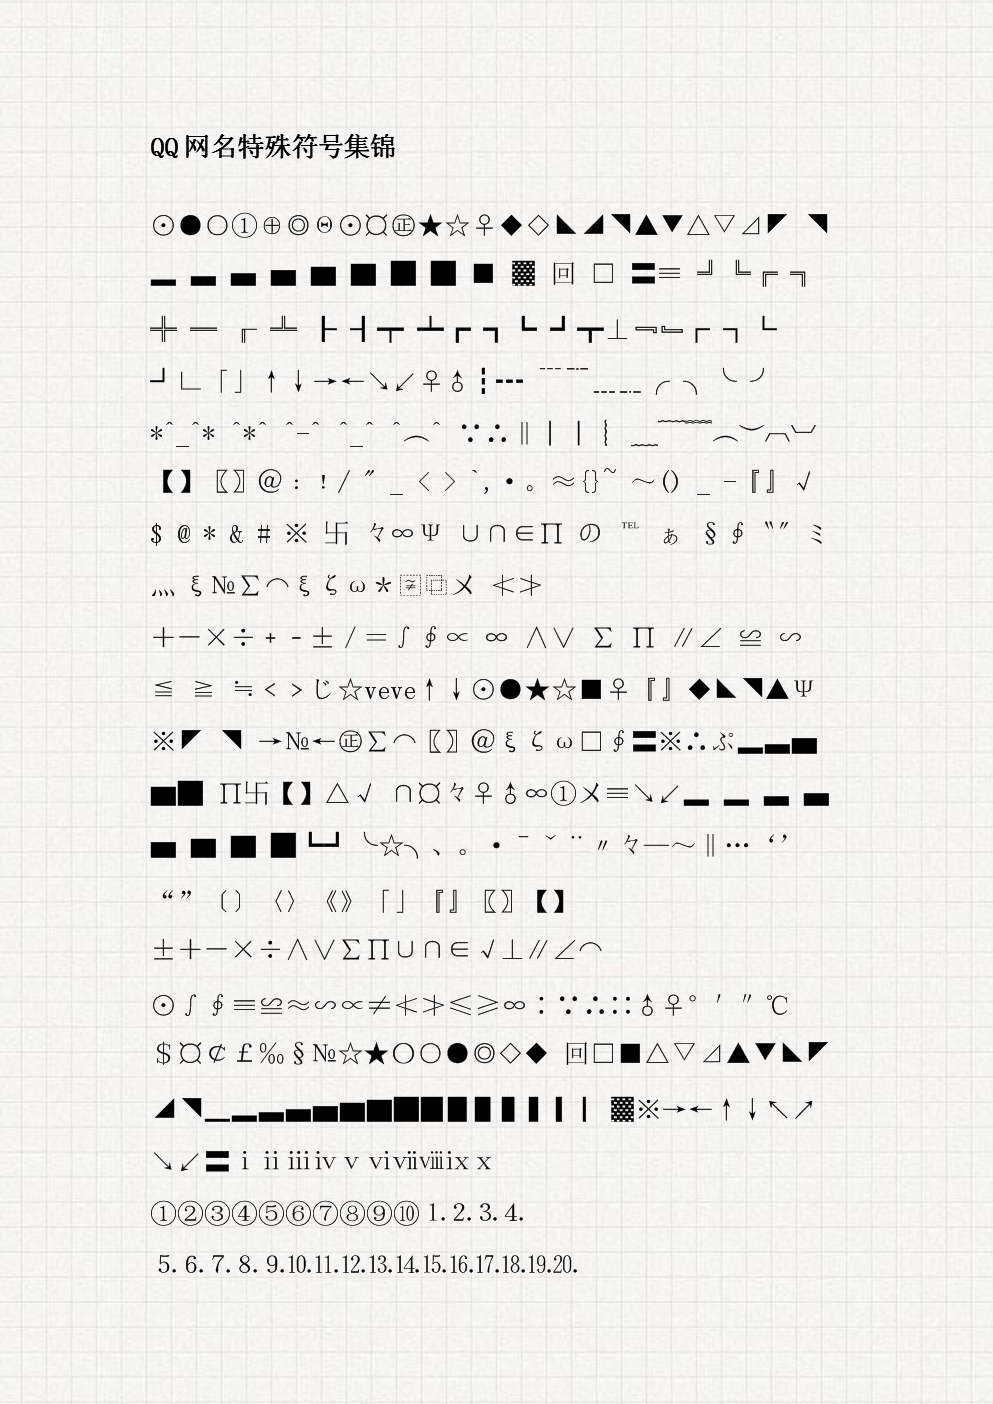 QQ网名特殊符号集锦
⊙●○①⊕◎Θ⊙¤㊣★☆♀◆◇◣◢◥▲▼△▽⊿◤ ◥
▁ ▂ ▃ ▄ ▅ ▆ ▇ █ ■ ▓ 回 □ 〓≡ ╝ ╚╔ ╗
╬ ═ ╓ ╩ ┠ ┨┯ ┷┏ ┓┗ ┛┳⊥﹃﹄┌ ┐└
┘∟「」↑↓→←↘↙♀♂┇┅ ﹉﹊﹍﹎╭ ╮╰ ╯
*^_^* ^*^ ^-^ ^_^ ^︵^ ∵∴‖︱︳︴﹏﹋﹌︵︶︹︺
【】〖〗@﹕﹗/ " _ < > `,·。≈{}~ ～() _ -『』√
$ @ * & # ※ 卐 々∞Ψ ∪∩∈∏ の ℡ ぁ §∮〝〞ミ
灬ξ№∑⌒ξζω*ㄨ ≮≯
＋－×÷﹢﹣±/＝∫∮∝ ∞ ∧∨ ∑ ∏ ∥∠ ≌ ∽
≦ ≧ ≒﹤﹥じ☆veve↑↓⊙●★☆■♀『』◆◣◥▲Ψ
※◤ ◥ →№←㊣∑⌒〖〗@ξζω□∮〓※∴ぷ▂▃▅
▆█ ∏卐【】△√ ∩¤々♀♂∞①ㄨ≡↘↙▂ ▂ ▃ ▄
▅ ▆ ▇ █┗┛ ╰☆╮、。·ˉˇ¨〃々—～‖… ‘’
“”〔〕〈〉《》「」『』〖〗【】
±＋－×÷∧∨∑∏∪∩∈√⊥∥∠⌒
⊙∫∮≡≌≈∽∝≠≮≯≤≥∞∶∵∴∷♂♀°′〃℃
＄¤￠￡‰§№☆★〇○●◎◇◆ 回□■△▽⊿▲▼◣◤
◢◥▁▂▃▄▅▆▇█▉▊▋▌▍▎▓※→←↑↓↖↗
↘↙〓ⅰⅱⅲⅳⅴⅵⅶⅷⅸⅹ
①②③④⑤⑥⑦⑧⑨⑩⒈⒉⒊⒋
⒌⒍⒎⒏⒐⒑⒒⒓⒔⒕⒖⒗⒘⒙⒚⒛